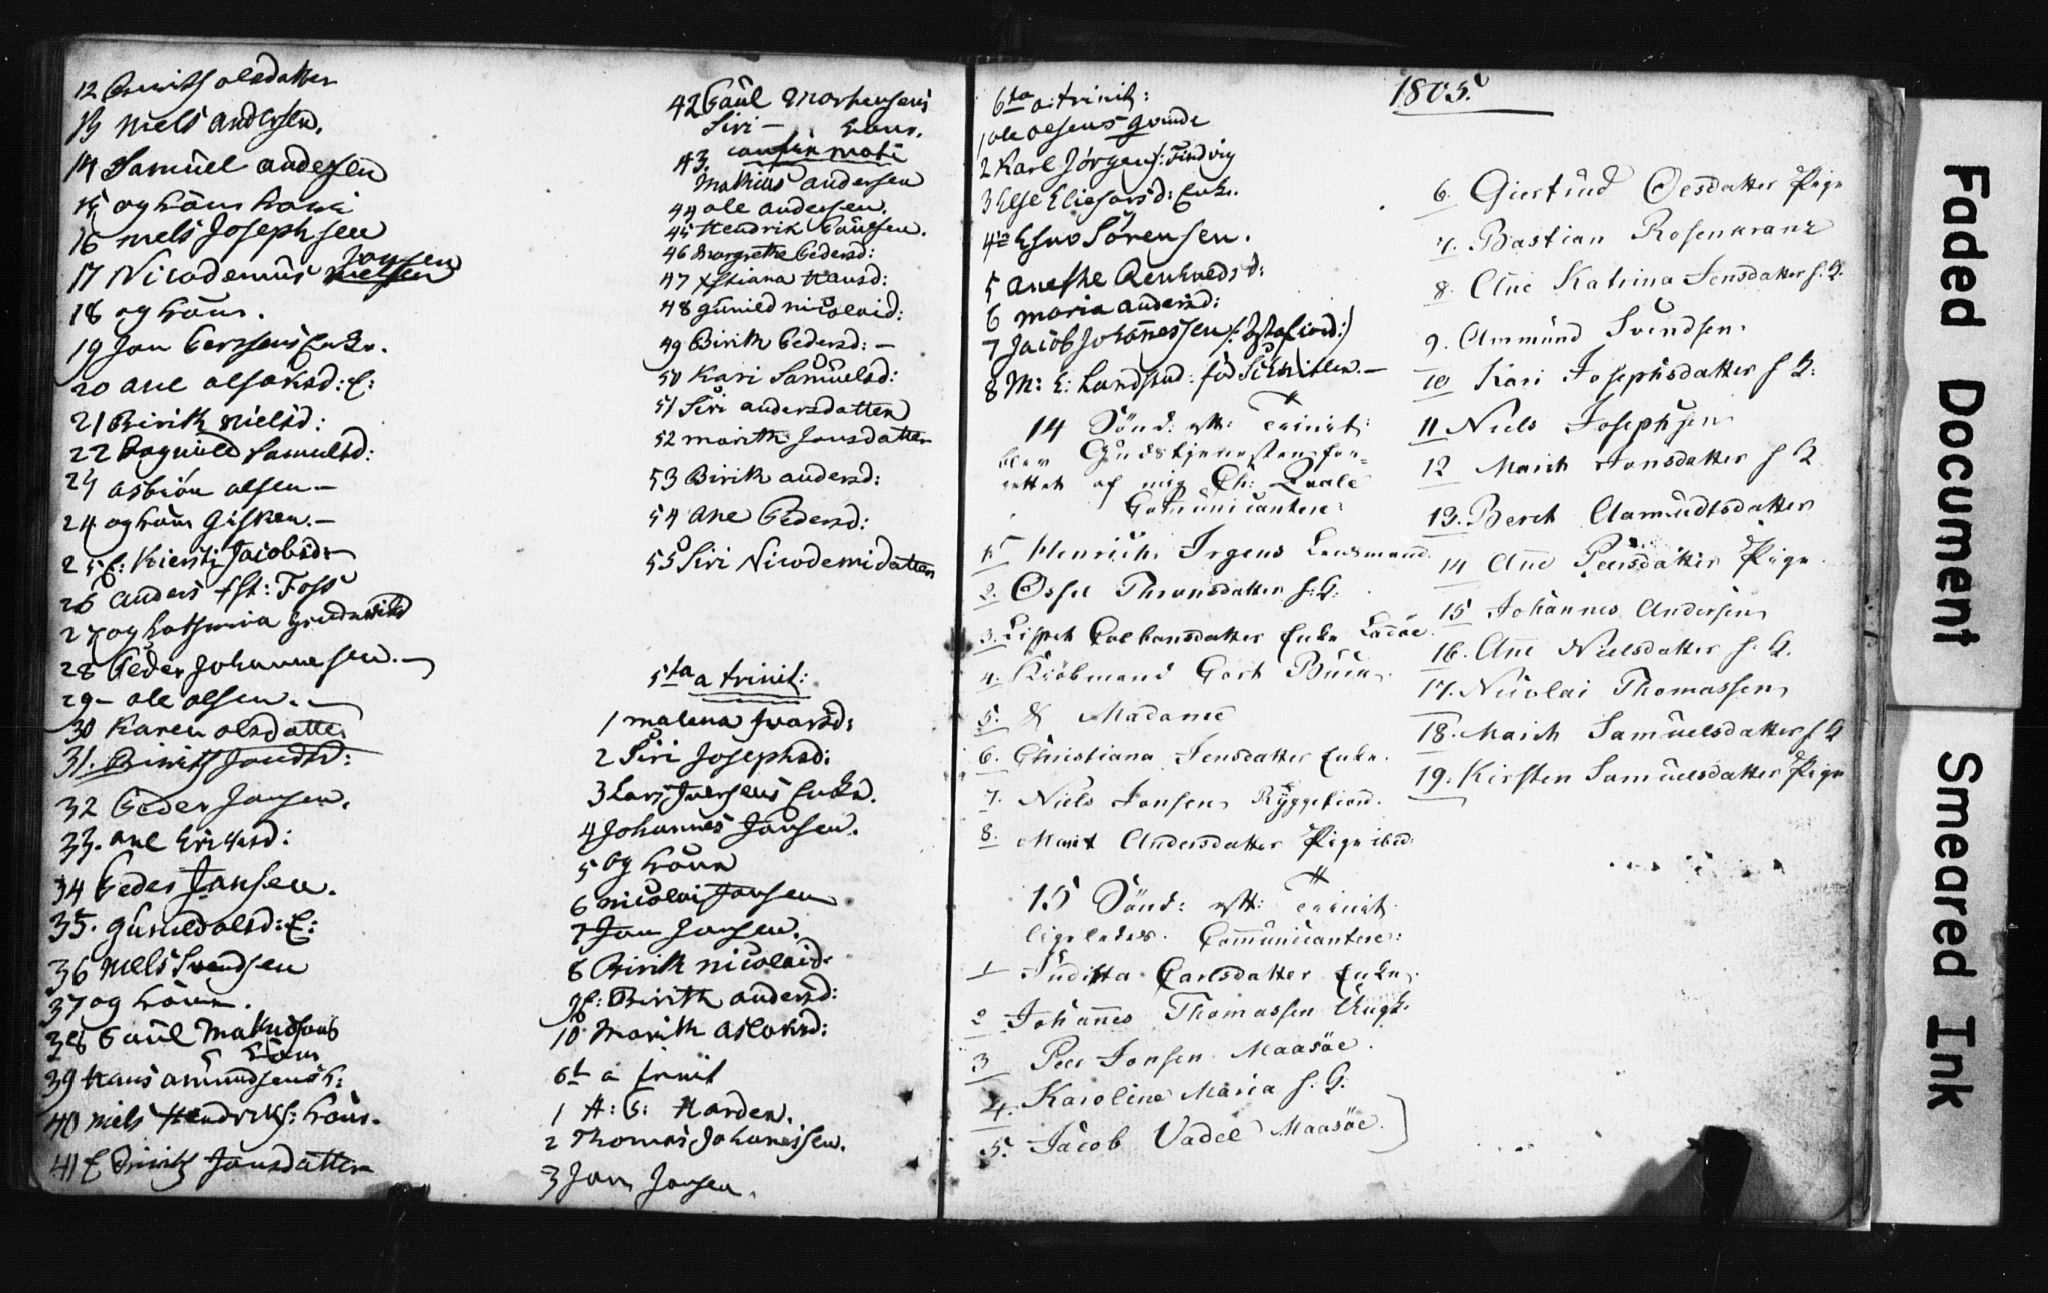 12 Birith olsdatter
13 Niels andersen.
14 Samuel andersen
15 og hans kone
16 niels Josephsen
Jonsen
17 Nicodemus nielsen
18 og hans.
19 Jon Persens Enke.
20 ane olsoksd: E:
21 Birith Nielsd:
22 Ragnild Samuelsd:
23 asbiön olsen –
24 og hans Gisken. –
25 E: Kiersti Jacobsd:
26 anders Foss
27 og
28 Peder Johannesen. –
29 – ole olsen. –
30 Karen olsdatter
31. Birith Jonsd:
32 Peder Jonsen.
33. ane Erichsd:
34 Peder Jonsen.
35. Gunild olsd: E:
36 Niels Svendsen
37 og hans.
38 Paul Mathisens
hans
39 Hans amundsens h:
40 niels Hendriks: hans.
41 E Birith Jonsdatter
42 Paul Mortensens
Siri – hans.
43. confirmati
Mathias andersen
44 ole andersen.
45 Hendrik Paulsen.
46 Margrethe Pedersd:
47 Xstiana Hansd:
48 gunild nicolaid:
49 Birith Pedersd: –
50 Kari Samuelsd:
51 Siri andersdatter
52 marith Jonsdatter
53 Birith andersd:
54 ane Pedersd:
55 Siri Nicodemidatter
5ta a trinit:
1 malena Ivarsd:
2 Siri Josephsd:
3 Lars Iversens Enke.
4 Johannes Jonsen.
5 og hans
6 nicolai Jonsen
7 Jon Jonsen.
8 Birith nicolaid:
9 E: Birith andersd:
10 Marith aslaksd:
6t a trinit
1 H: P: Harden.
2 Thomas Johannesen.
3 Jon Jonsen.
6ta a: trinit:
1 ole olsens qvinde
2 Karl Jörgens: Findvig
3 Else Eliesarsd: Enke.
4 Esno Sörensen.
5 anethe
6 maria andersd:
7 Jacob Johannessen
8 M: E: Landstad: föd Schnitler. –
1805.
14 Sönd: ytt: Trinit:
blev Gudstjenesten for-
rettet af mig Ch: Qvale
Communicantere:
1. Henrich Irgens Lensmand
2. Ossel Thronsdatter h: Q:
3. Lisbet Colbansdatter Enke
4. Kiöbmand Gort Buck
5. & Madame
6. Christiana Jensdatter Enke.
7. Niels Jonsen Ryggefiord.
8. Marit Andersdatter Pige ibid:
15 Sönd: ytt: Trinit
ligeledes. Communicantere:
1 Juditta Carlsdatter Enke.
2 Johannes Thomassen Ungk.
3 Peer Jonsen Maasöe.
4. Karoline Maria h: Q:
5. Jacob Vadel Maasöe.
6. Giertrud Olesdatter Pige
7. Bastian Rosenkranz
8. Ane Katrina Jensdatter h: Q.
9. Ammund Svendsen.
10 Kari Josephsdatter h Q:
11 Niels Josephsen
12 Marith Jonsdatter h Q
13. Beret Aamundsdatter
14 Ane Peersdatter Pige.
15 Johannes Andersen
16. Ane Nielsdatter h: Q.
17. Nicolai Thomassen
18. Marith Samuelsdatter h Q
19. Kirsten Samuelsdatter Pige
Faded Document
Smeared Ink